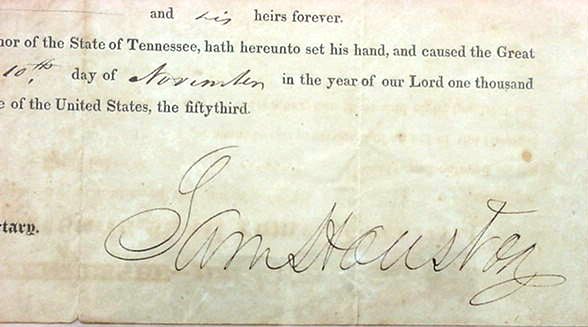 and his heirs forever.
nor of the State of Tennessee, hath hereunto set his hand, and caused the Great
10th day of November in the year of our Lord one thousand
e of the United States, the fiftythird.
tary.
Sam Houston